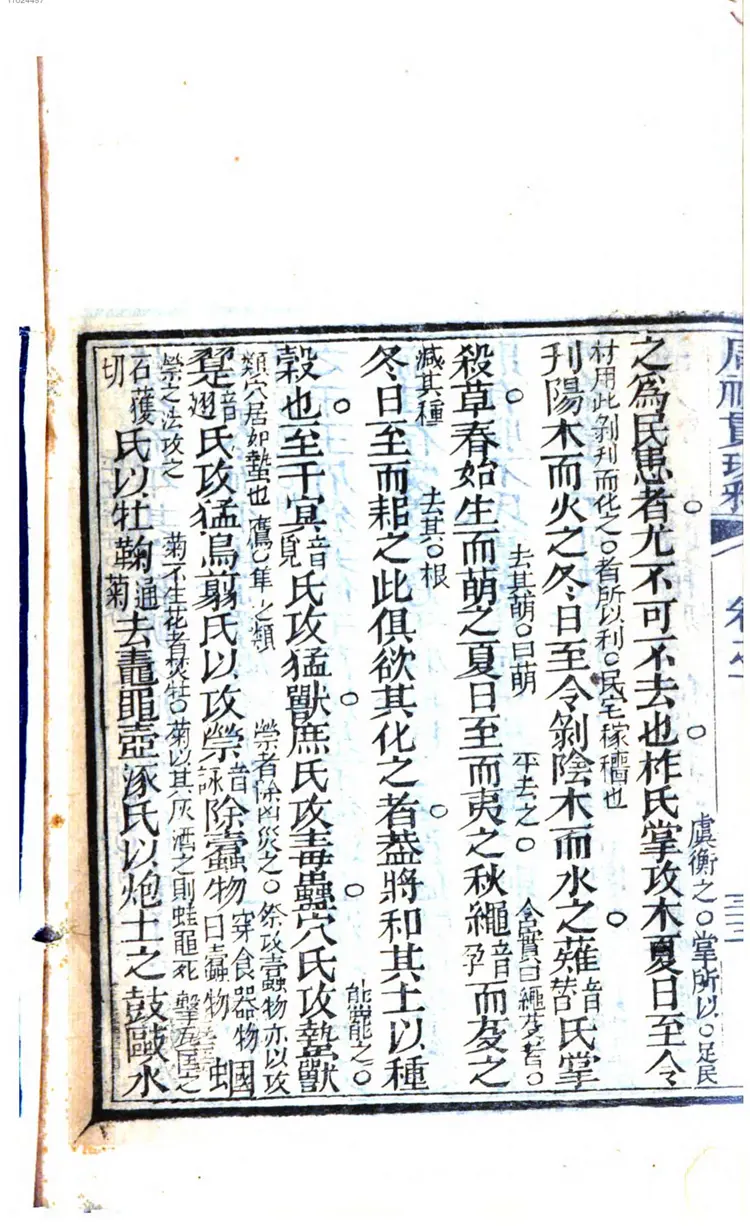 周禮貫珠
之爲民患者尤不可不去也柞氏掌攻木夏日至令
虞衡之○掌所以○足民
材用此剝刋而化之○者所以利○民宅稼穡也
刋陽木而火之冬日至令剝陰木而水之薙音氏掌
去其萌○曰萌 平去之○ 含實曰繩芟者○
殺草春始生而萌之夏日至而夷之秋繩音孕而芟之
滅其種 去其○根
冬日至而耜之此俱欲其化之者葢將和其土以種
穀也至于㝠音覓氏攻猛獸庶氏攻毒蠱穴氏攻蟄獸
類穴居如蟄也 鷹○隼之類 禜者除凶災之○祭攻蠹物亦以攻
翨音翅氏攻猛鳥翦氏以攻禜音詠除蠹物穿食器物曰蠹物蟈
禜之法攻之 菊不生花者焚牡○菊以其灰洒之則蛙黽死 擊瓦匡之
石蒦切氏以牡鞠通菊去鼃黽壺涿氏以炮土之鼓敺水